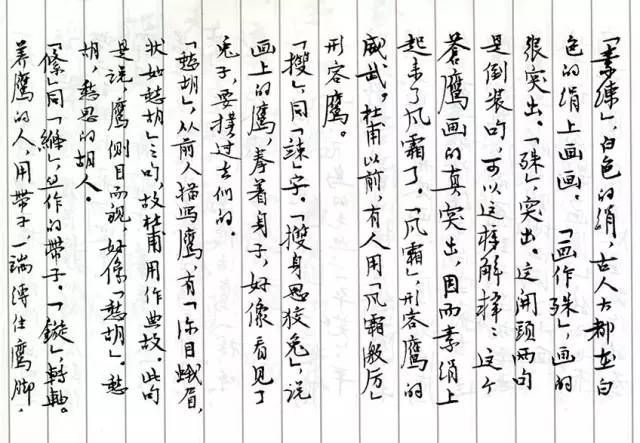 「素练」，白色的绢，古人大都在白
色的绢上画画。「画作殊」，画的
很突出。「殊」，突出。这开头两句
是倒装句，可以这样解释：这个
蒼鹰画的真突出，因而素绢上
起来了风霜了。「风霜」，形容鹰的
威武，杜甫以前，有人用「风霜激厉」
形容鹰。
「㩳」，同「竦」字。「㩳身思狡兔」，说
画上的鹰，拳着身子，好像看见了
兔子，要撲过去似的。
「愁胡」，从前人描写鹰，有「深目蛾眉，
状如愁胡」之句，故杜甫用作典故。此句
是说，鹰侧目而视，好像「愁胡」。愁
胡，愁思的胡人。
「絛」同「縧」，丝作的带子。「鏇」，轉軸。
养鹰的人，用带子一端缚住鹰脚，